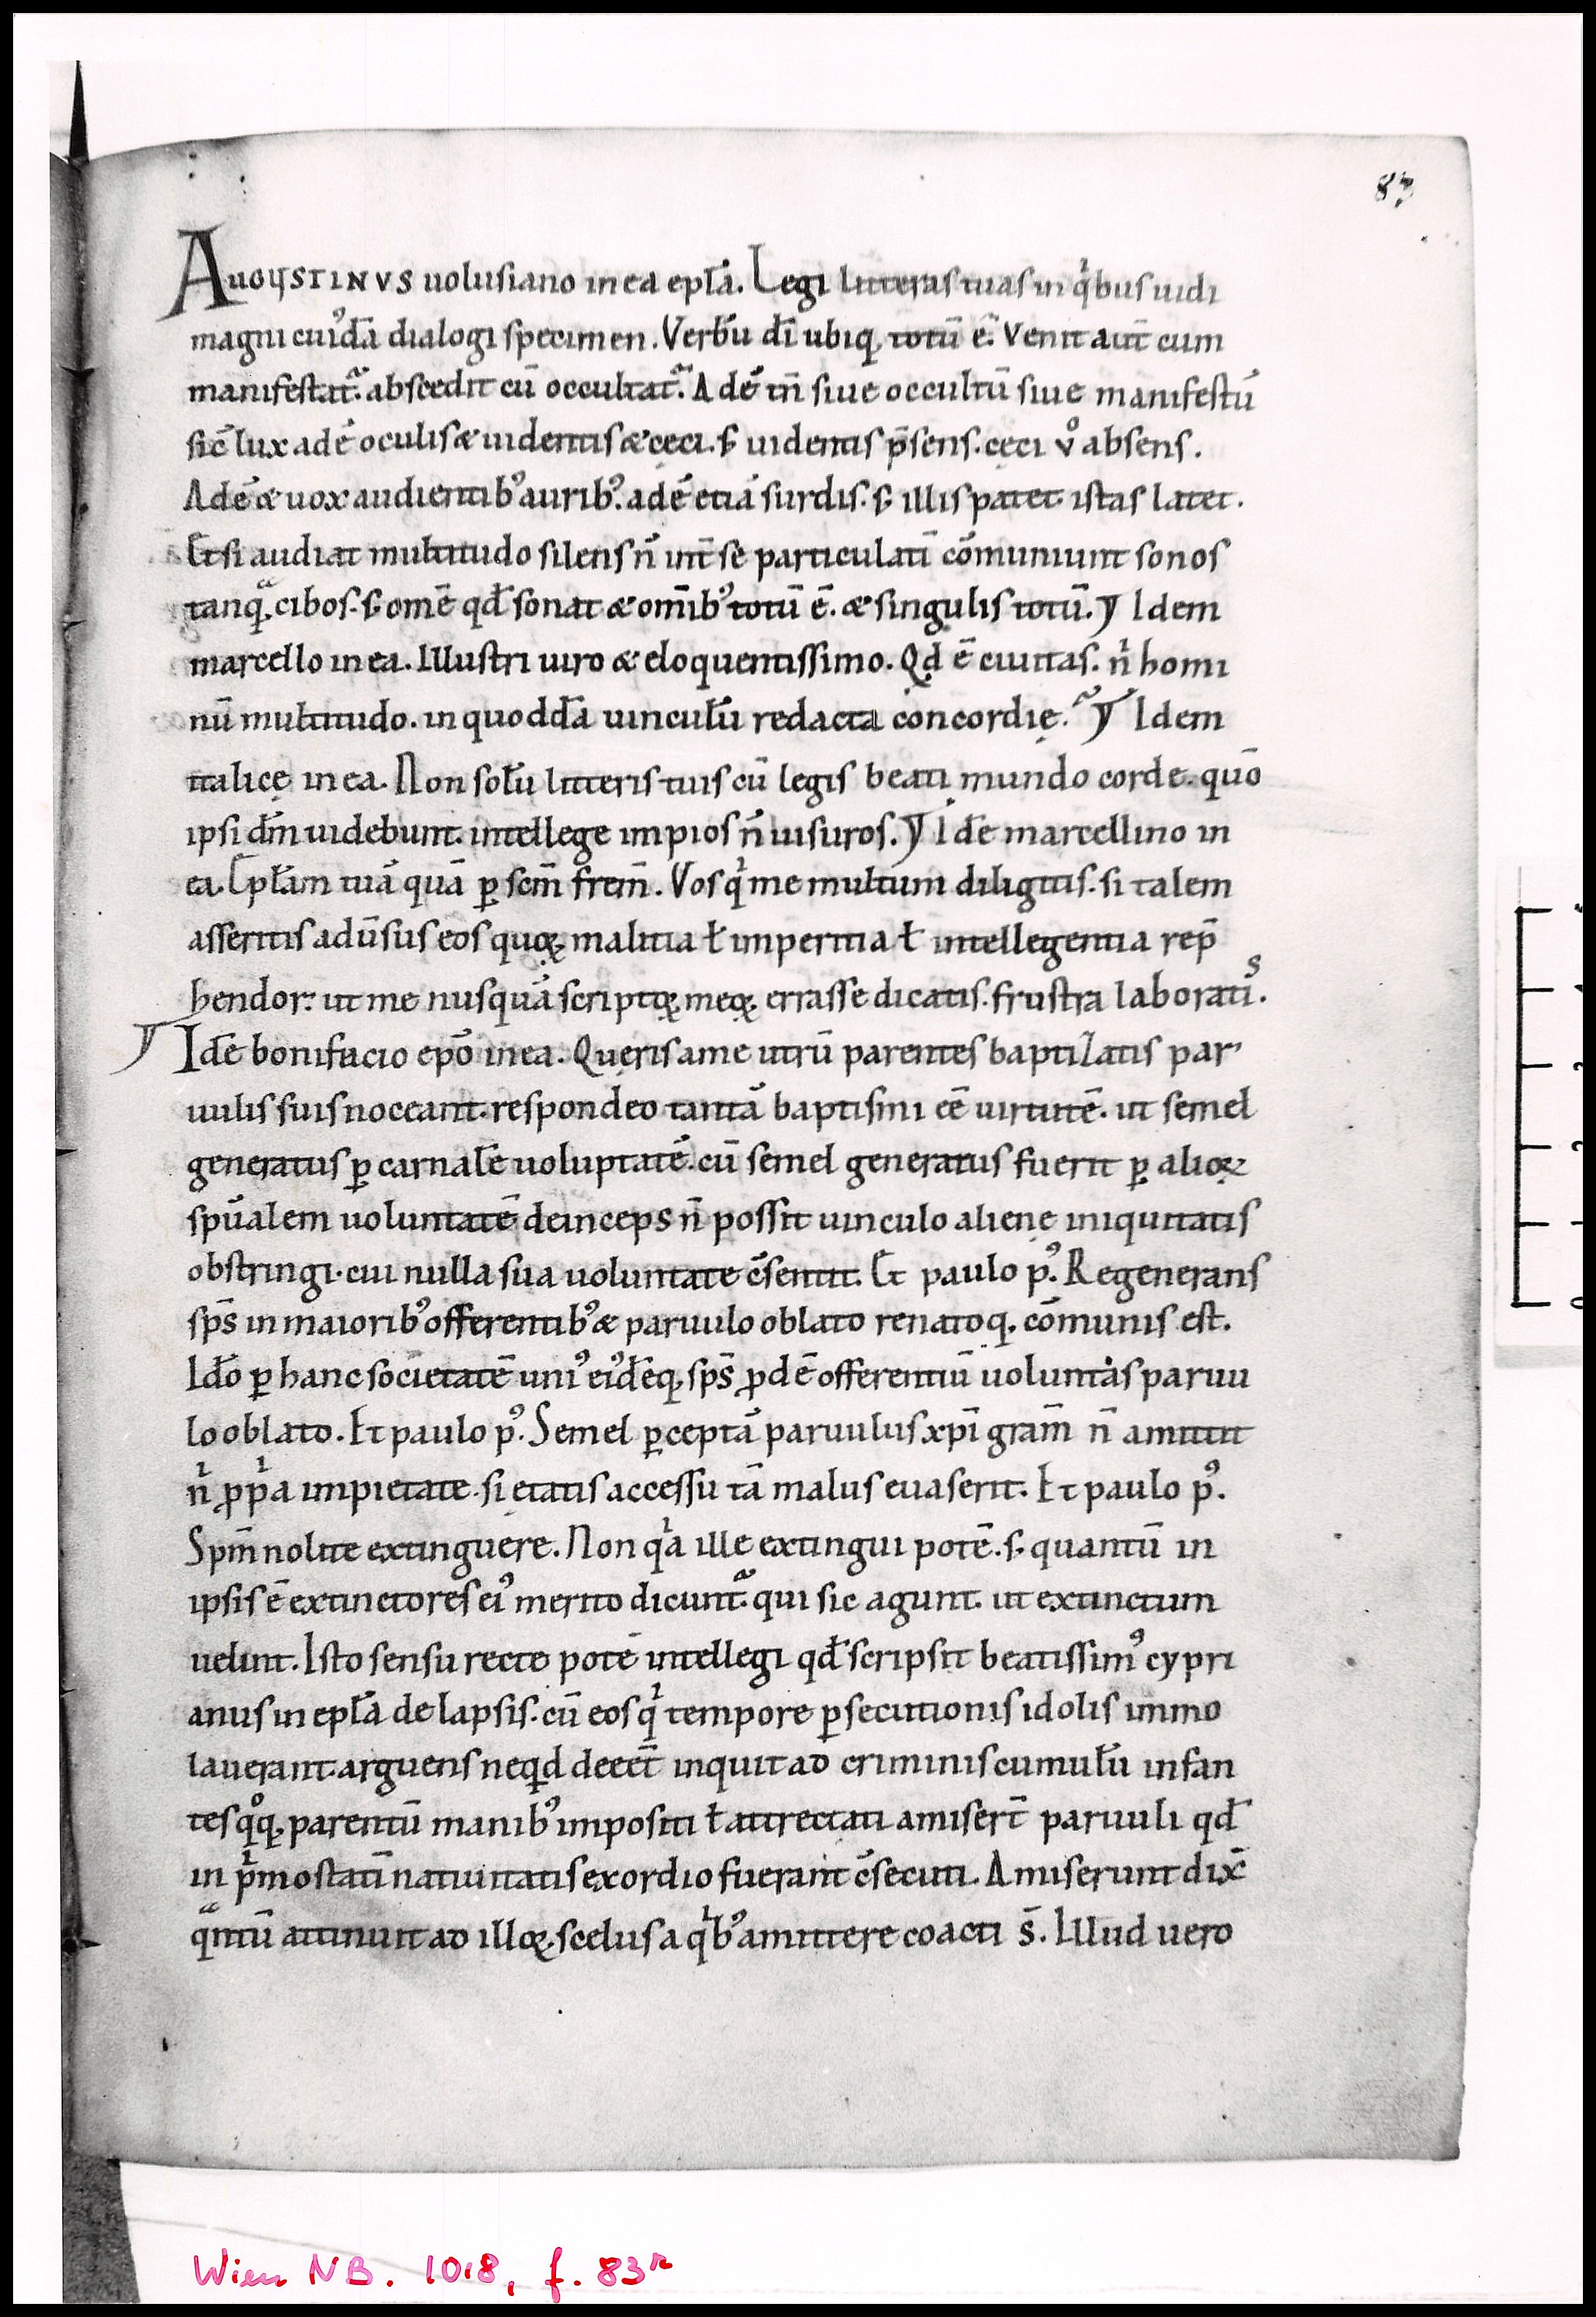 83
AUGUSTINVS uolusiano in ea epła. Legi litteras tuas in qͥbus uidi
magni cuiꝰdā dialogi specimen. Verbū dī ubiq; totū ē. Venit aut̄ cum
manifestat᷑. abscedit cū occultat᷑. Adē tn̄ siue occultū siue manifestū
sic̄ lux adē oculis & uidentis & cęci. s; uidentis p̄sens. cęci ůo absens.
Adē & uox audientibꝰ auribꝰ. adē etiā surdis. s; illis patet istas latet.
Et si audiat multitudo silens n̄ int̄ se particulatī cōminuunt sonos
tanqͣ; cibos. s; omē qđ sonat & omībꝰ totū ē. & singulis totū. Idem
marcello in ea. Illustri uiro & eloquentissimo. Qđ ē ciuitas. nͥ homi
nū multitudo. in quoddā uinculū redacta concordię. Idem
italicę in ea. Non solū litteris tuis cū legis beati mundo corde. quō
ipsi dm̄ uidebunt. intellege impios n̄ uisuros. Idē marcellino in
ea. Epłam tuā quā ꝑ scm̄ frem̄. Vos qͥ me multum diligitis. si talem
asseritis adūsus eos quoꝝ malitia ł imperitia ł intellegentia rep̄
hendor. ut me nusquā scriptoꝝ meoꝝ errasse dicatis. frustra laboratis.
Idē bonifacio epō in ea. Queris a me utrū parentes baptizatis par
uulis suis noceant. respondeo tantā baptismi eē uirtutē. ut semel
generatus ꝑ carnalē uoluptatē. cū semel generatus fuerit ꝑ alioꝝ
spūalem uoluntatē deinceps n̄ possit uinculo alienę iniquitatis
obstringi. cui nulla sua uoluntate c̄sentit. Et paulo pꝰ. Regenerans
sps̄ in maioribꝰ offerentibꝰ & paruulo oblato renatoq; cōmunis est.
Idō ꝑ hanc societatē uniꝰ eiꝰdēq; sps̄ ꝓdē offerentiū uoluntas paruu
lo oblato. Et paulo pꝰ. Semel ꝑceptā paruulus xp̄i gram̄ n̄ amittit
nͥ ꝓpͥa impietate. si ętatis accessu tā malus euaserit. Et paulo pꝰ.
Spm̄ nolite extinguere. Non qͥa ille extingui potē. s; quantū in
ipsis ē extinctores eiꝰ merito dicunt᷑. qui sic agunt. ut extinctum
uelint. Isto sensu recte potē intellegi qđ scripsit beatissimꝰ cypri
anus in epła de lapsis. cū eos qͥ tempore ꝑsecutionis idolis immo
lauerant. arguens neqͥd deeēt inquit ad criminis cumulū infan
tes qͦq; parentū manibꝰ impositi ł attrectati amisert̄ paruuli qđ
in pͥmo statī natiuitatis exordio fuerant c̄secuti. Amiserunt dix̄
qͣntū attinuit ad illoꝝ scelus a qͥbꝰ amittere coacti s̄. Illud uero
Wien NB. 1018, f. 83r
5
4
3
2
1
0